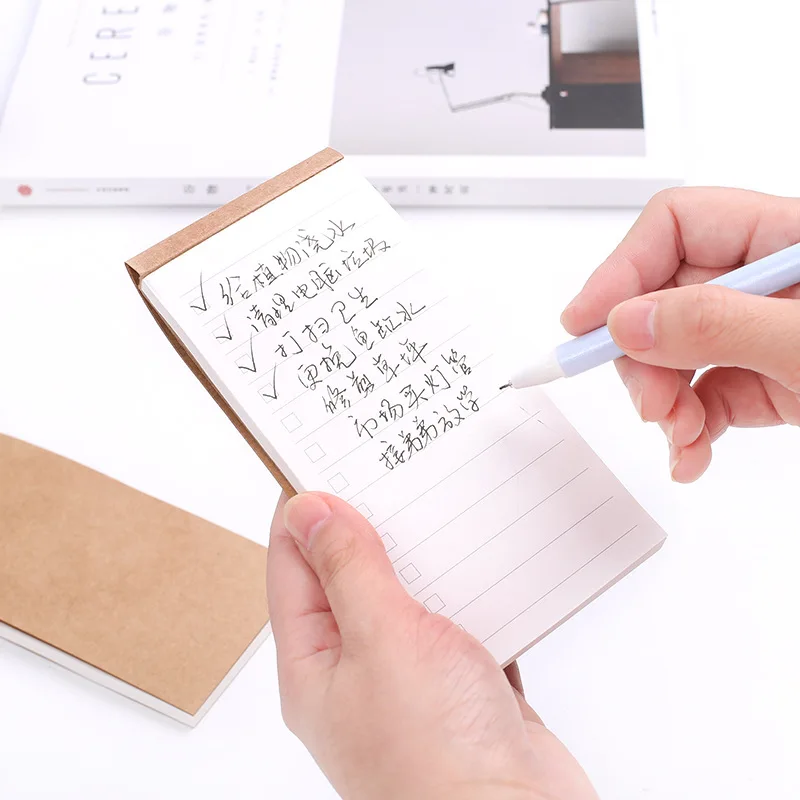 CERE
✓ 给植物浇水
✓ 清理电脑垃圾
✓ 打扫卫生
✓ 更换鱼缸水
修剪草坪
市场买灯管
接弟弟放学